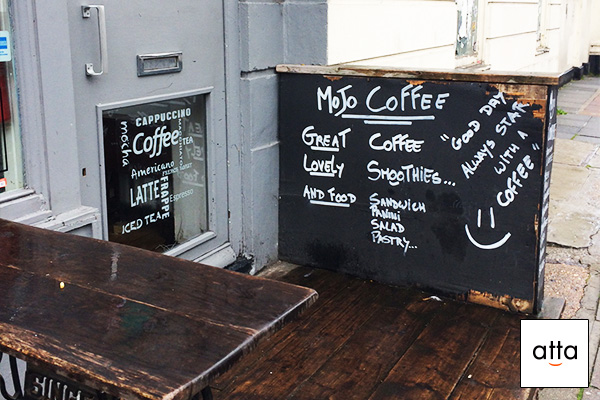 MOJO COFFEE
GREAT COFFEE
LOVELY SMOOTHIES...
AND FOOD SANDWICH
PANINI
SALAD
PASTRY...
"GOOD DAY
ALWAYS START
WITH A
COFFEE"
CAPPUCCINO
mocha
Coffee
TEA
Americano
LATTE
FRAPPE
Espresso
ICED TEA
atta